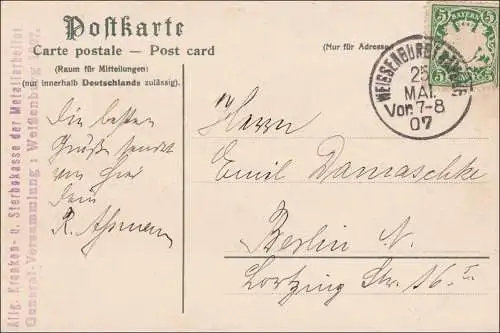 Postkarte
Carte postale — Post card
(Raum für Mitteilungen)
(nur innerhalb Deutschlands zulässig).
(Nur für Adresse
5 BAYERN 5
5 5
WEISSENBURG
25
MAI.
Vor. 7-8
07
Allg. Kranken- u. Sterbekasse der Metallarbeiter
General-Versammlung : Weißenburg 1907.
Die besten
Grüße sendet
von hier
dein
R.
Herrn
Emil Damaschke
Berlin N.
Lortzing Str. 16 I